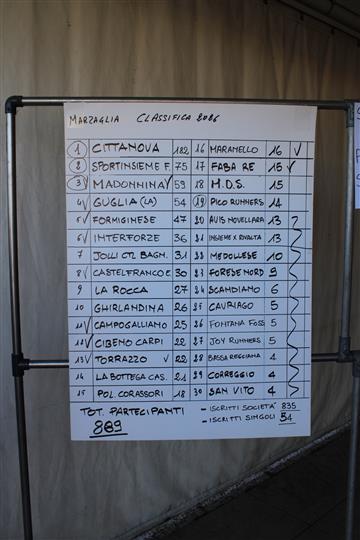 MARZAGLIA CLASSIFICA 2026
1 CITTANOVA 182 16 MARANELLO 16 ✓
2 SPORTINSIEME F. 75 17 FABA RE 15 ✓
3 ✓ MADONNINA ✓ 59 18 M.D.S. 15
4 ✓ GUGLIA (LA) 54 19 PICO RUNNERS 14
5 ✓ FORMIGINESE 47 20 AVIS NOVELLARA 13
6 ✓ INTERFORZE 36 21 INSIEME X RIVALTA 13
7 JOLLI CTL BAGN. 31 22 MEDOLLESE 10
8 ✓ CASTELFRANCO E. 30 23 FORESE NORD 9
9 LA ROCCA 27 24 SCANDIANO 6
10 GHIRLANDINA 26 25 CAVRIAGO 5
11 ✓ CAMPOGALLIANO 25 26 FONTANA FOSS 5
12 ✓ CIBENO CARPI 22 27 JOY RUNNERS 5
13 ✓ TORRAZZO ✓ 22 28 BASSA REGGIANA 4
14 LA BOTTEGA CAS. 21 29 CORREGGIO 4
15 POL. CORASSORI 18 30 SAN VITO 4
TOT. PARTECIPANTI - ISCRITTI SOCIETA' 835
889 - ISCRITTI SINGOLI 54